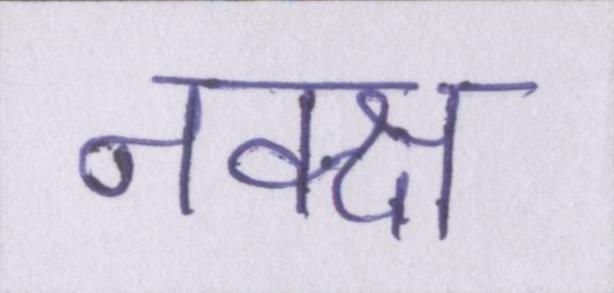 नवक्ष